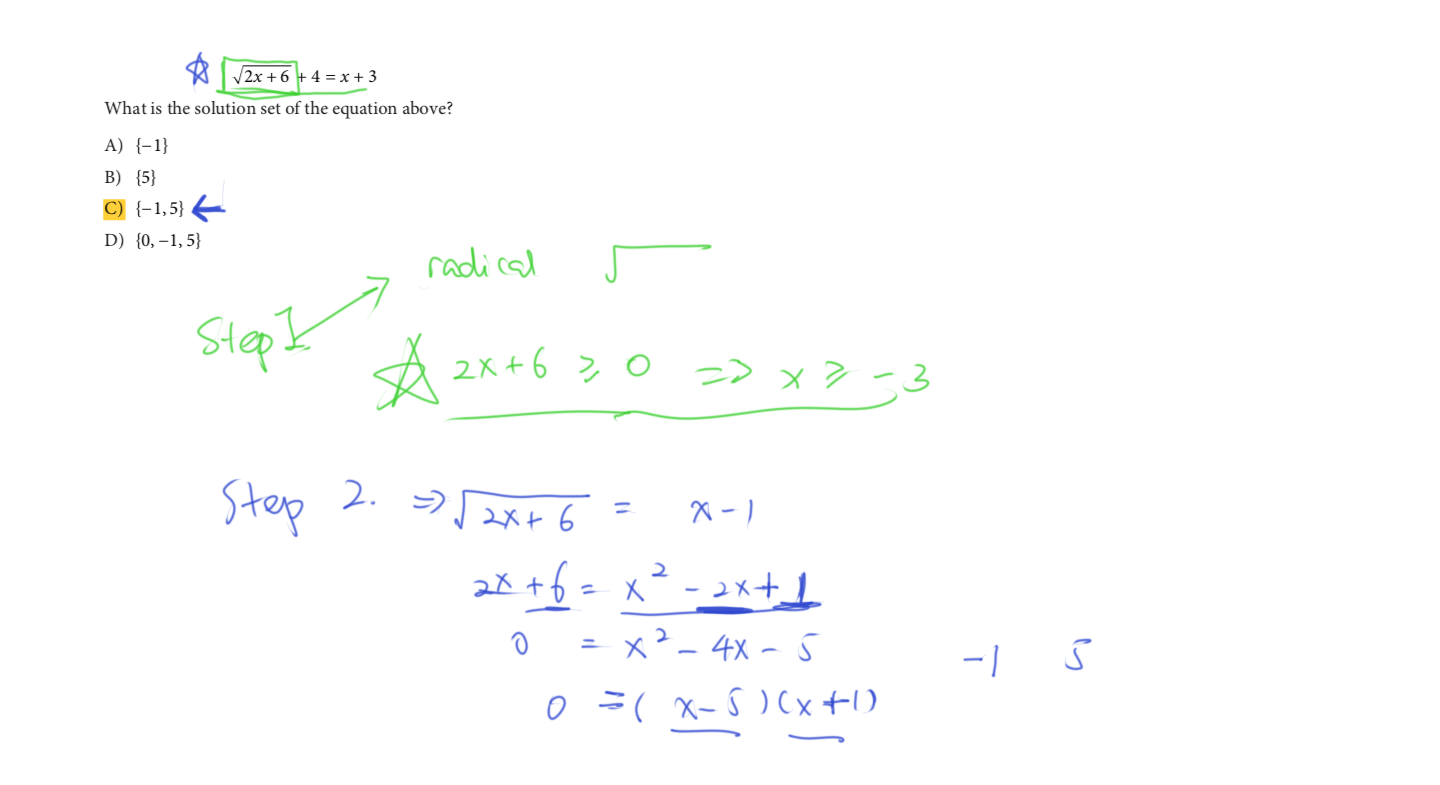 √2x + 6 + 4 = x + 3
What is the solution set of the equation above?
A) {−1}
B) {5}
C) {−1, 5}
D) {0, −1, 5}
radical √
Step 1
2x+6 ≥ 0 => x ≥ -3
Step 2. => √2x+6 = x-1
2x+6 = x² - 2x+1
0 = x² - 4x - 5
-1 5
0 = (x-5)(x+1)